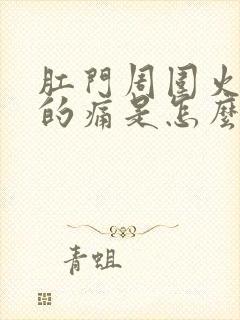 肛門周圍火
的痛是怎麼
青蛆